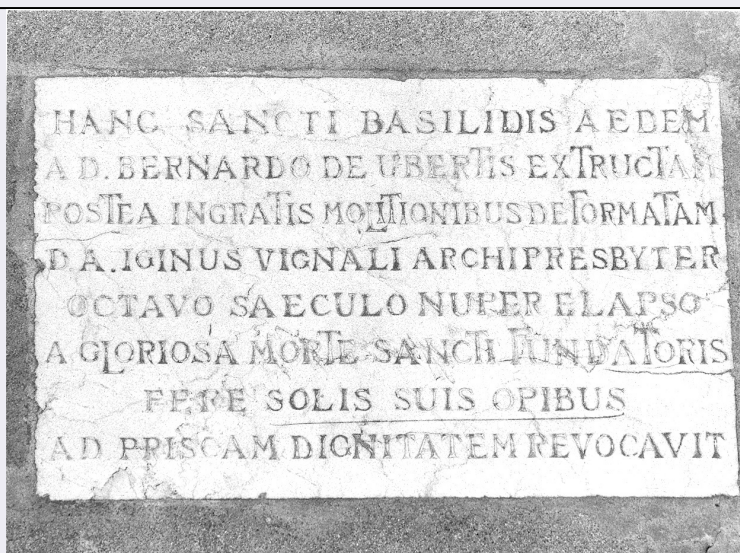 HANC SANCTI BASILIDIS AEDEM
A D. BERNARDO DE UBERTIS EXTRUCTAM
POSTEA INGRATIS MOLITIONIBUS DEFORMATAM
D. A. IGINUS VIGNALI ARCHIPRESBYTER
OCTAVO SAECULO NUPER ELAPSO
A GLORIOSA MORTE SANCTI FUNDATORIS
FERE SOLIS SUIS OPIBUS
AD PRISCAM DIGNITATEM REVOCAVIT